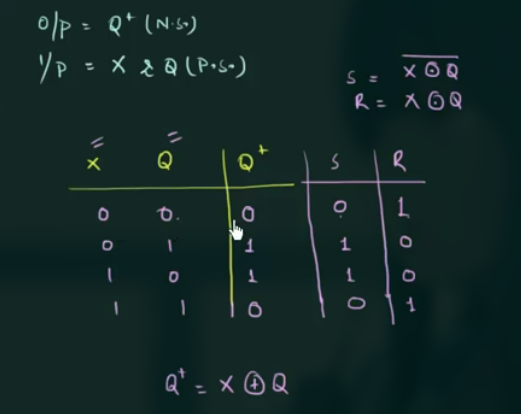 O/P = Q⁺ (N.S.)
I/P = X & Q (P.S.)
S = \overline{X ⊙ Q}
R = X ⊙ Q
X Q Q⁺ S R
0 0. 0 0 1
0 1 1 1 0
1 0 1 1 0
1 1 0 0 1
Q⁺ = X ⊕ Q